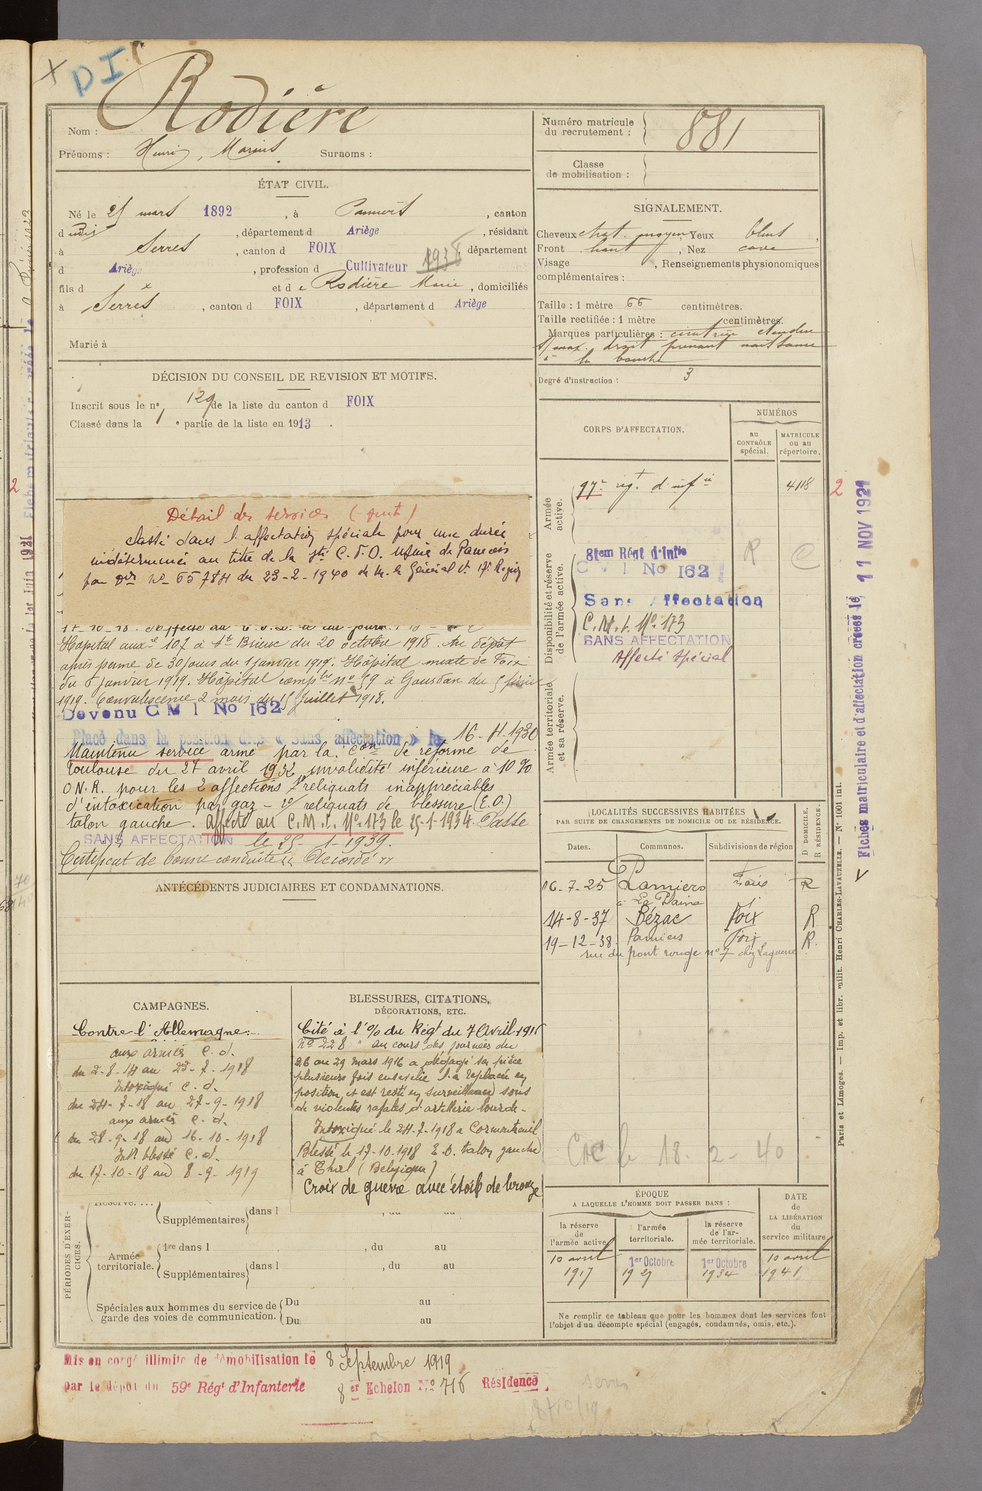 DI
Rodière
Nom :
Prénoms : Henri, Marius. Surnoms :
Numéro matricule du recrutement : 881
Classe de mobilisation :
ÉTAT CIVIL.
Né le 25 mars 1892, à , canton
dudit, département d Ariège, résidant
à Serres, canton d FOIX 1938 département
d Ariège, profession d Cultivateur
fils d x et de Rodière Marie, domiciliés
à Serrès, canton d FOIX, département d Ariège
Marié à
SIGNALEMENT.
Cheveux chat. moyen Yeux bleus
Front haut, Nez cave
Visage , Renseignements physionomiques
complémentaires :
Taille : 1 mètre 66 centimètres.
Taille rectifiée : 1 mètre centimètres.
Marques particulières : cicatrice étendue
max. droit prenant naissance
à la bouche
Degré d'instruction : 3
DÉCISION DU CONSEIL DE REVISION ET MOTIFS.
Inscrit sous le n° 129 de la liste du canton d FOIX
Classé dans la 1e partie de la liste en 1913.
Détail des services (suite)
classé dans l'affectation spéciale pour une durée
indéterminée au titre de la Sté C.F.O. Usine de Pamiers
par Don N° 6578H du 23-2-1940 de M. le Général Ct 17e Région
Hopital auxre 107 à St Brieuc du 20 octobre 1918. Au dépôt
après perme de 30 jours du 1 janvier 1919. Hôpital mixte de Foix
du 8 janvier 1919. Hôpital complre n° 49 à Gourdan du 5
1919. Convalescence 2 mois du 15 Juillet 1918.
Devenu C M I No 162
Placé dans la position dite « Sans affectation » le 16-11-1930
Maintenu service armé par la Con de réforme de
Toulouse du 27 avril 1932 invalidité inférieure à 10%
O.N.R. pour les 2 affections 1° reliquats inappréciables
d'intoxication par gaz - 2° reliquats de blessure (E.O.)
talon gauche. Affecté au C.M.I. N° 173 le 25-1-1934. Passé
SANS AFFECTATION le 15-1-1939.
Certificat de bonne conduite "Accordé"
ANTÉCÉDENTS JUDICIAIRES ET CONDAMNATIONS.
CORPS D'AFFECTATION.
NUMÉROS
au CONTRÔLE spécial.
MATRICULE ou au répertoire.
Armée active.
97e rég. d'infie 4118 2
Disponibilité et réserve de l'armée active.
81em Régt d'Infie R C
C M I No 162
Sans Affectation
C.M.I. N° 173
SANS AFFECTATION
Affecté Spécial
Armée territoriale et sa réserve.
LOCALITÉS SUCCESSIVES HABITÉES
PAR SUITE DE CHANGEMENTS DE DOMICILE OU DE RÉSIDENCE.
Dates. Communes. Subdivisions de région D DOMICILE. R RÉSIDENCE.
16-7-25 Pamiers Foix R
à La Plaine
14-8-37 Bézac Foix R
19-12-38 Pamiers Foix R.
rue du pont rouge n° 7 chez Laguerre
CAMPAGNES.
Contre l'Allemagne.
aux armées C. d.
du 2-8-14 au 23-7-1918
Intoxiqué C. d.
du 24-7-18 au 27-9-1918
aux armées C. d.
du 28-9-18 au 16-10-1918
Int. blessé C. d.
du 17-10-18 au 8-9-1919
BLESSURES, CITATIONS,
DÉCORATIONS, ETC.
Cité à l'O/ du Régt du 7 Avril 1916
N° 228 "au cours des journées du
26 au 29 mars 1916 a dégagé sa pièce
plusieurs fois ensevelie l'a replacée en
position et est resté en surveillance sous
de violentes rafales d'artillerie lourde.
Intoxiqué le 24-7-1918 a Cormontreuil
Blessé le 17-10-1918 E.O. talon gauche
à Thiel (Belgique)
Croix de guerre avec étoile de bronze
CAC le 18-2-40
PÉRIODES D'EXERCICES.
Réserve...
Supplémentaires dans l , du au
Armée territoriale.
1re dans l , du au
Supplémentaires dans l , du au
Spéciales aux hommes du service de garde des voies de communication.
Du au
Du au
ÉPOQUE
A LAQUELLE L'HOMME DOIT PASSER DANS :
la réserve de l'armée active
l'armée territoriale.
la réserve de l'armée territoriale.
DATE de LA LIBÉRATION du service militaire
10 avril 1917
1er Octobre 1927
1er Octobre 1934
10 avril 1941
Ne remplir ce tableau que pour les hommes dont les services font
l'objet d'un décompte spécial (engagés, condamnés, omis, etc.).
Mis en congé illimité de démobilisation le 8 Septembre 1919
par le dépôt du 59e Régt d'Infanterie 8er Echelon No 716 Résidence
Serres
Paris et Limoges. — Imp. et libr. milit. Henri CHARLES-LAVAUZELLE. — N° 1001 int.
Fiches matriculaire et d'affectation créées le 11 NOV 1921